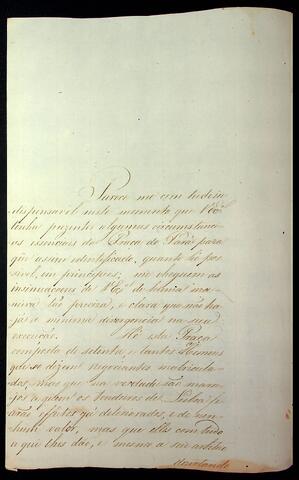 Parece me com tudo in
dispensavel neste momento que V Ex.ª
tenha prezentes algumas circunstanci
as esenciais da Praça do Pará para
que assim identificado, quanto he pos
sivel, em principios; me cheguem as
insinuaçoens de V Ex.ª de huma ma
neira tão preciza, e clara que não ha
ja a minima divergencia na sua
execução. He esta Praça
composta de setenta e tantos Homens
que se dizem negociantes matricula
dos, mas que na verdade são
os Tendeiros de Lisboa p
efeitos já deteriorados, e de
valor, mas que elles com tudo
a que lhes dão, e mesmo a